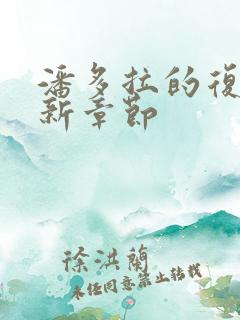 潘多拉的復
新章節
徐洪蘭
未经同意禁止转载